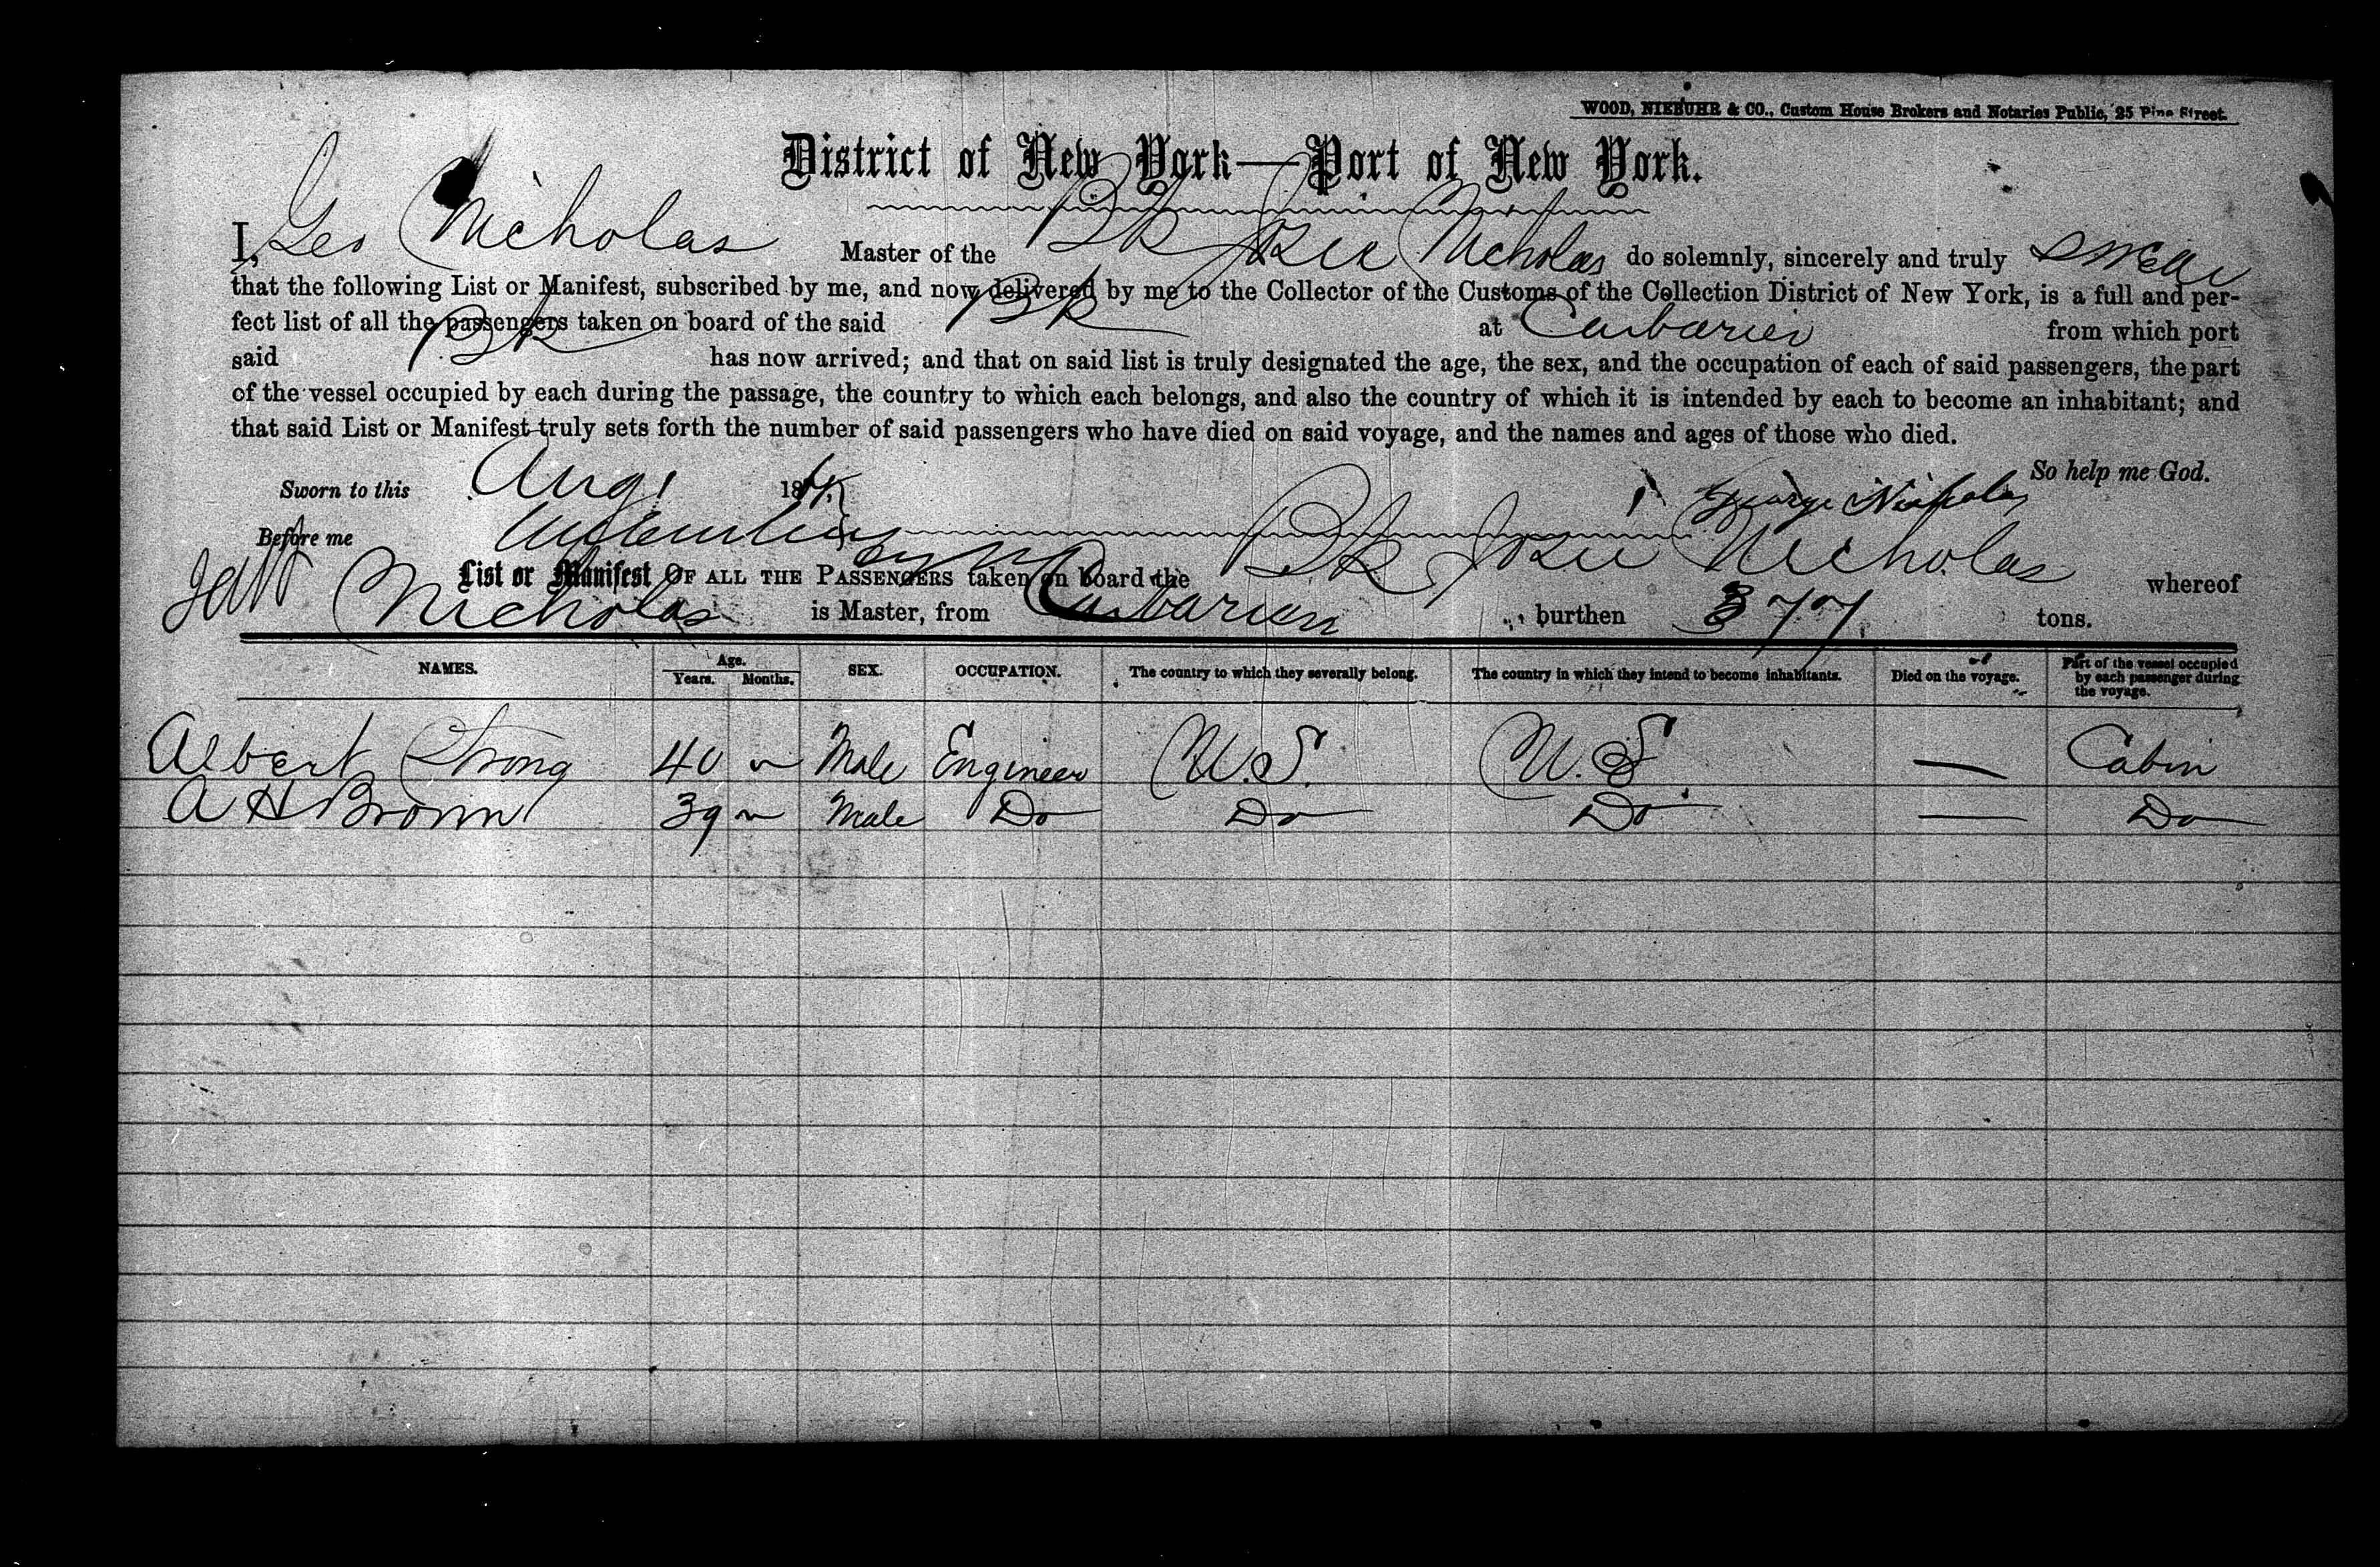 WOOD, NIEBUHR & CO., Custom House Brokers and Notaries Public, 25 Pine Street.
District of New York—Port of New York.
I, Geo Nicholas Master of the Bk Nicholas do solemnly, sincerely and truly swear
that the following List or Manifest, subscribed by me, and now delivered by me to the Collector of the Customs of the Collection District of New York, is a full and per-
fect list of all the passengers taken on board of the said Bk at Caibarien from which port
said Bk has now arrived; and that on said list is truly designated the age, the sex, and the occupation of each of said passengers, the part
of the vessel occupied by each during the passage, the country to which each belongs, and also the country of which it is intended by each to become an inhabitant; and
that said List or Manifest truly sets forth the number of said passengers who have died on said voyage, and the names and ages of those who died.
So help me God.
Sworn to this Aug 1 18
George Nicholas
Before me
List or Manifest OF ALL THE PASSENGERS taken on board the Bk Nicholas whereof
Nicholas is Master, from Caibarien burthen 377 tons.
NAMES. Age. Years. Months. SEX. OCCUPATION. The country to which they severally belong. The country in which they intend to become inhabitants. Died on the voyage. Part of the vessel occupied by each passenger during the voyage.
Albert Strong 40 Male Engineer U.S. U.S. — Cabin
A H Brown 39 Male Do Do Do — Do